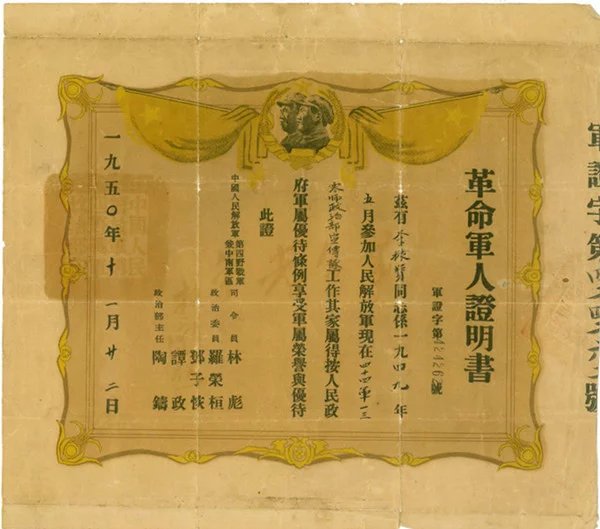 軍證字第
號
革命軍人證明書
軍證字第 號
茲有李 賢同志係一九四九年
五月參加人民解放軍現在四十四軍一三
師政治部宣傳隊工作其家屬得按人民政
府軍屬優待條例享受軍屬榮譽與優待
此證
中國人民解放軍第四野戰軍暨中南軍區
司令員 林彪
政治委員 羅榮桓
鄧子恢
譚政
政治部主任 陶鑄
一九五〇年十一月廿二日